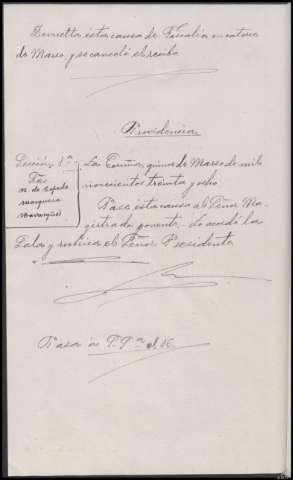 Devuelta ésta causa de Fiscalia en catorce
de Marzo, y se canceló el recibo
Providencia
Sección 1ª
Sres
La Coruña, quince de Marzo de mil
novecientos treinta y ocho
Pase ésta causa al Señor Ma-
gistrado ponente. Lo acordó la
Sala y rubrica el Señor Presidente
Pasa